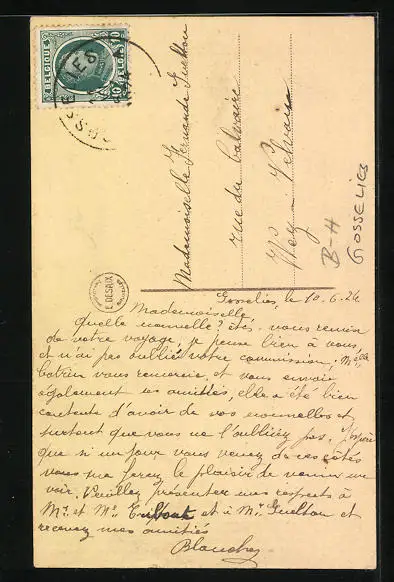 BELGIQUE
BELGIË
10
10
Mademoiselle Fernande
rue du Calvaire
B-H
GOSSELIES
E. DESAIX
Gosselies, le 10.6.26
Mademoiselle,
Quelle nouvelle? êtes-vous remise
de votre voyage, je pense bien à vous,
et n'ai pas oublié votre commission, Mlle
vous remercie, et vous envoie
également ses amitiés, elle a été bien
contente d'avoir de vos nouvelles et
surtout que vous ne l'oubliez pas. J'espère
que si un jour vous venez de ces côtés
vous me ferez le plaisir de venir me
voir. Veuillez présenter mes respects à
Mr. et Me. et à Mr. et
recevez mes amitiés
Blanche